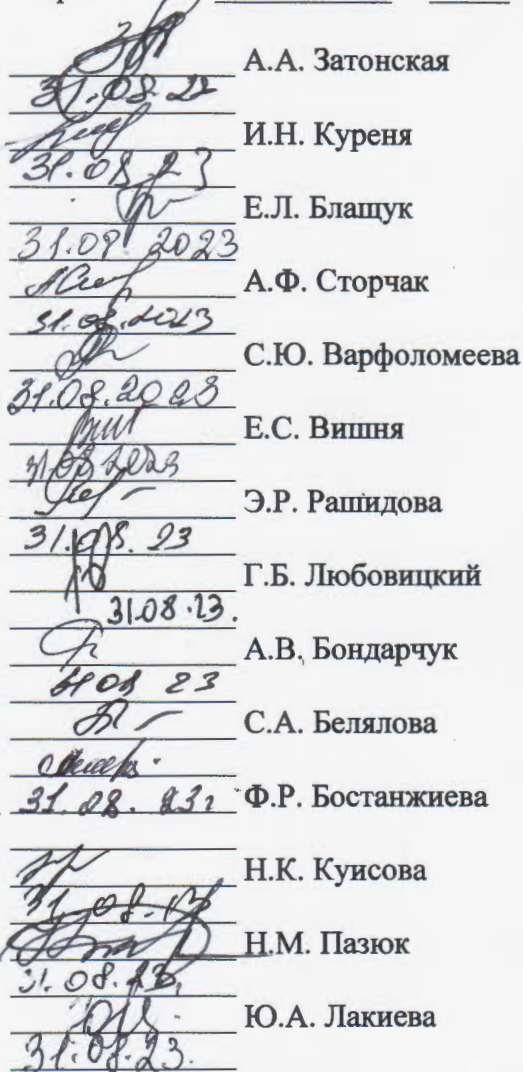 А.А. Затонская
31.08.22
И.Н. Куреня
31.08.23
Е.Л. Блащук
31.08.2023
А.Ф. Сторчак
31.08.2023
С.Ю. Варфоломеева
31.08.2023
Е.С. Вишня
31.08.2023
Э.Р. Рашидова
31.08.23
Г.Б. Любовицкий
31.08.23.
А.В. Бондарчук
31 08 23
С.А. Белялова
31.08.23г Ф.Р. Бостанжиева
Н.К. Куисова
31.08.23
Н.М. Пазюк
31.08.23.
Ю.А. Лакиева
31.08.23.